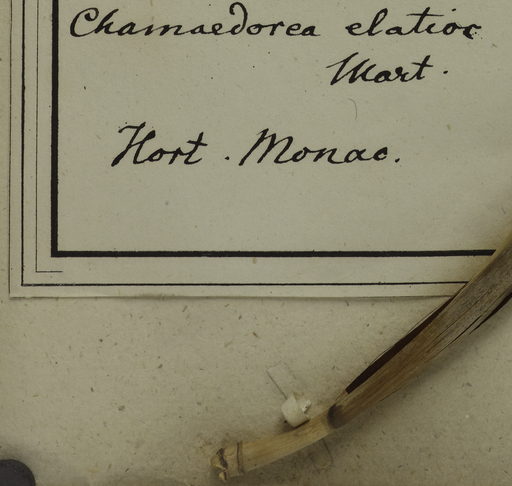 Chamaedorea elatior
Mart.
Hort. Monac.